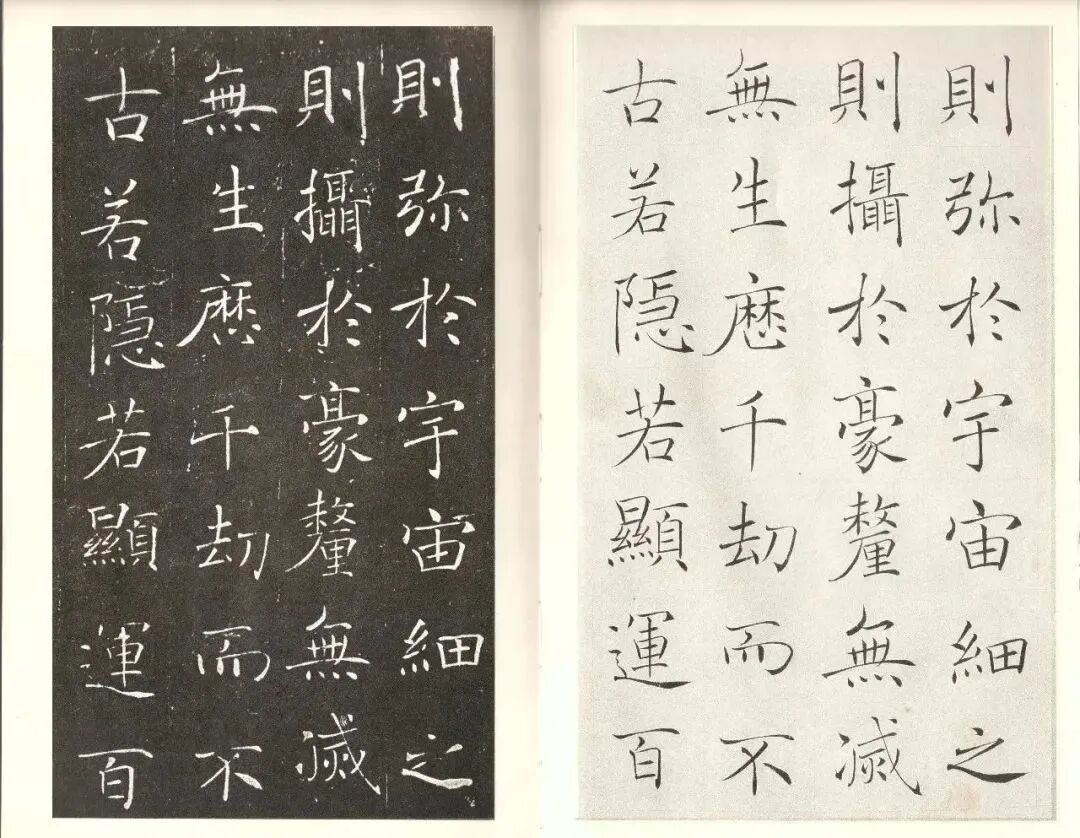 則弥於宇宙細之
則攝於豪釐無滅
無生歷千劫而不
古若隱若顯運百
則弥於宇宙細之
則攝於豪釐無滅
無生歷千劫而不
古若隱若顯運百